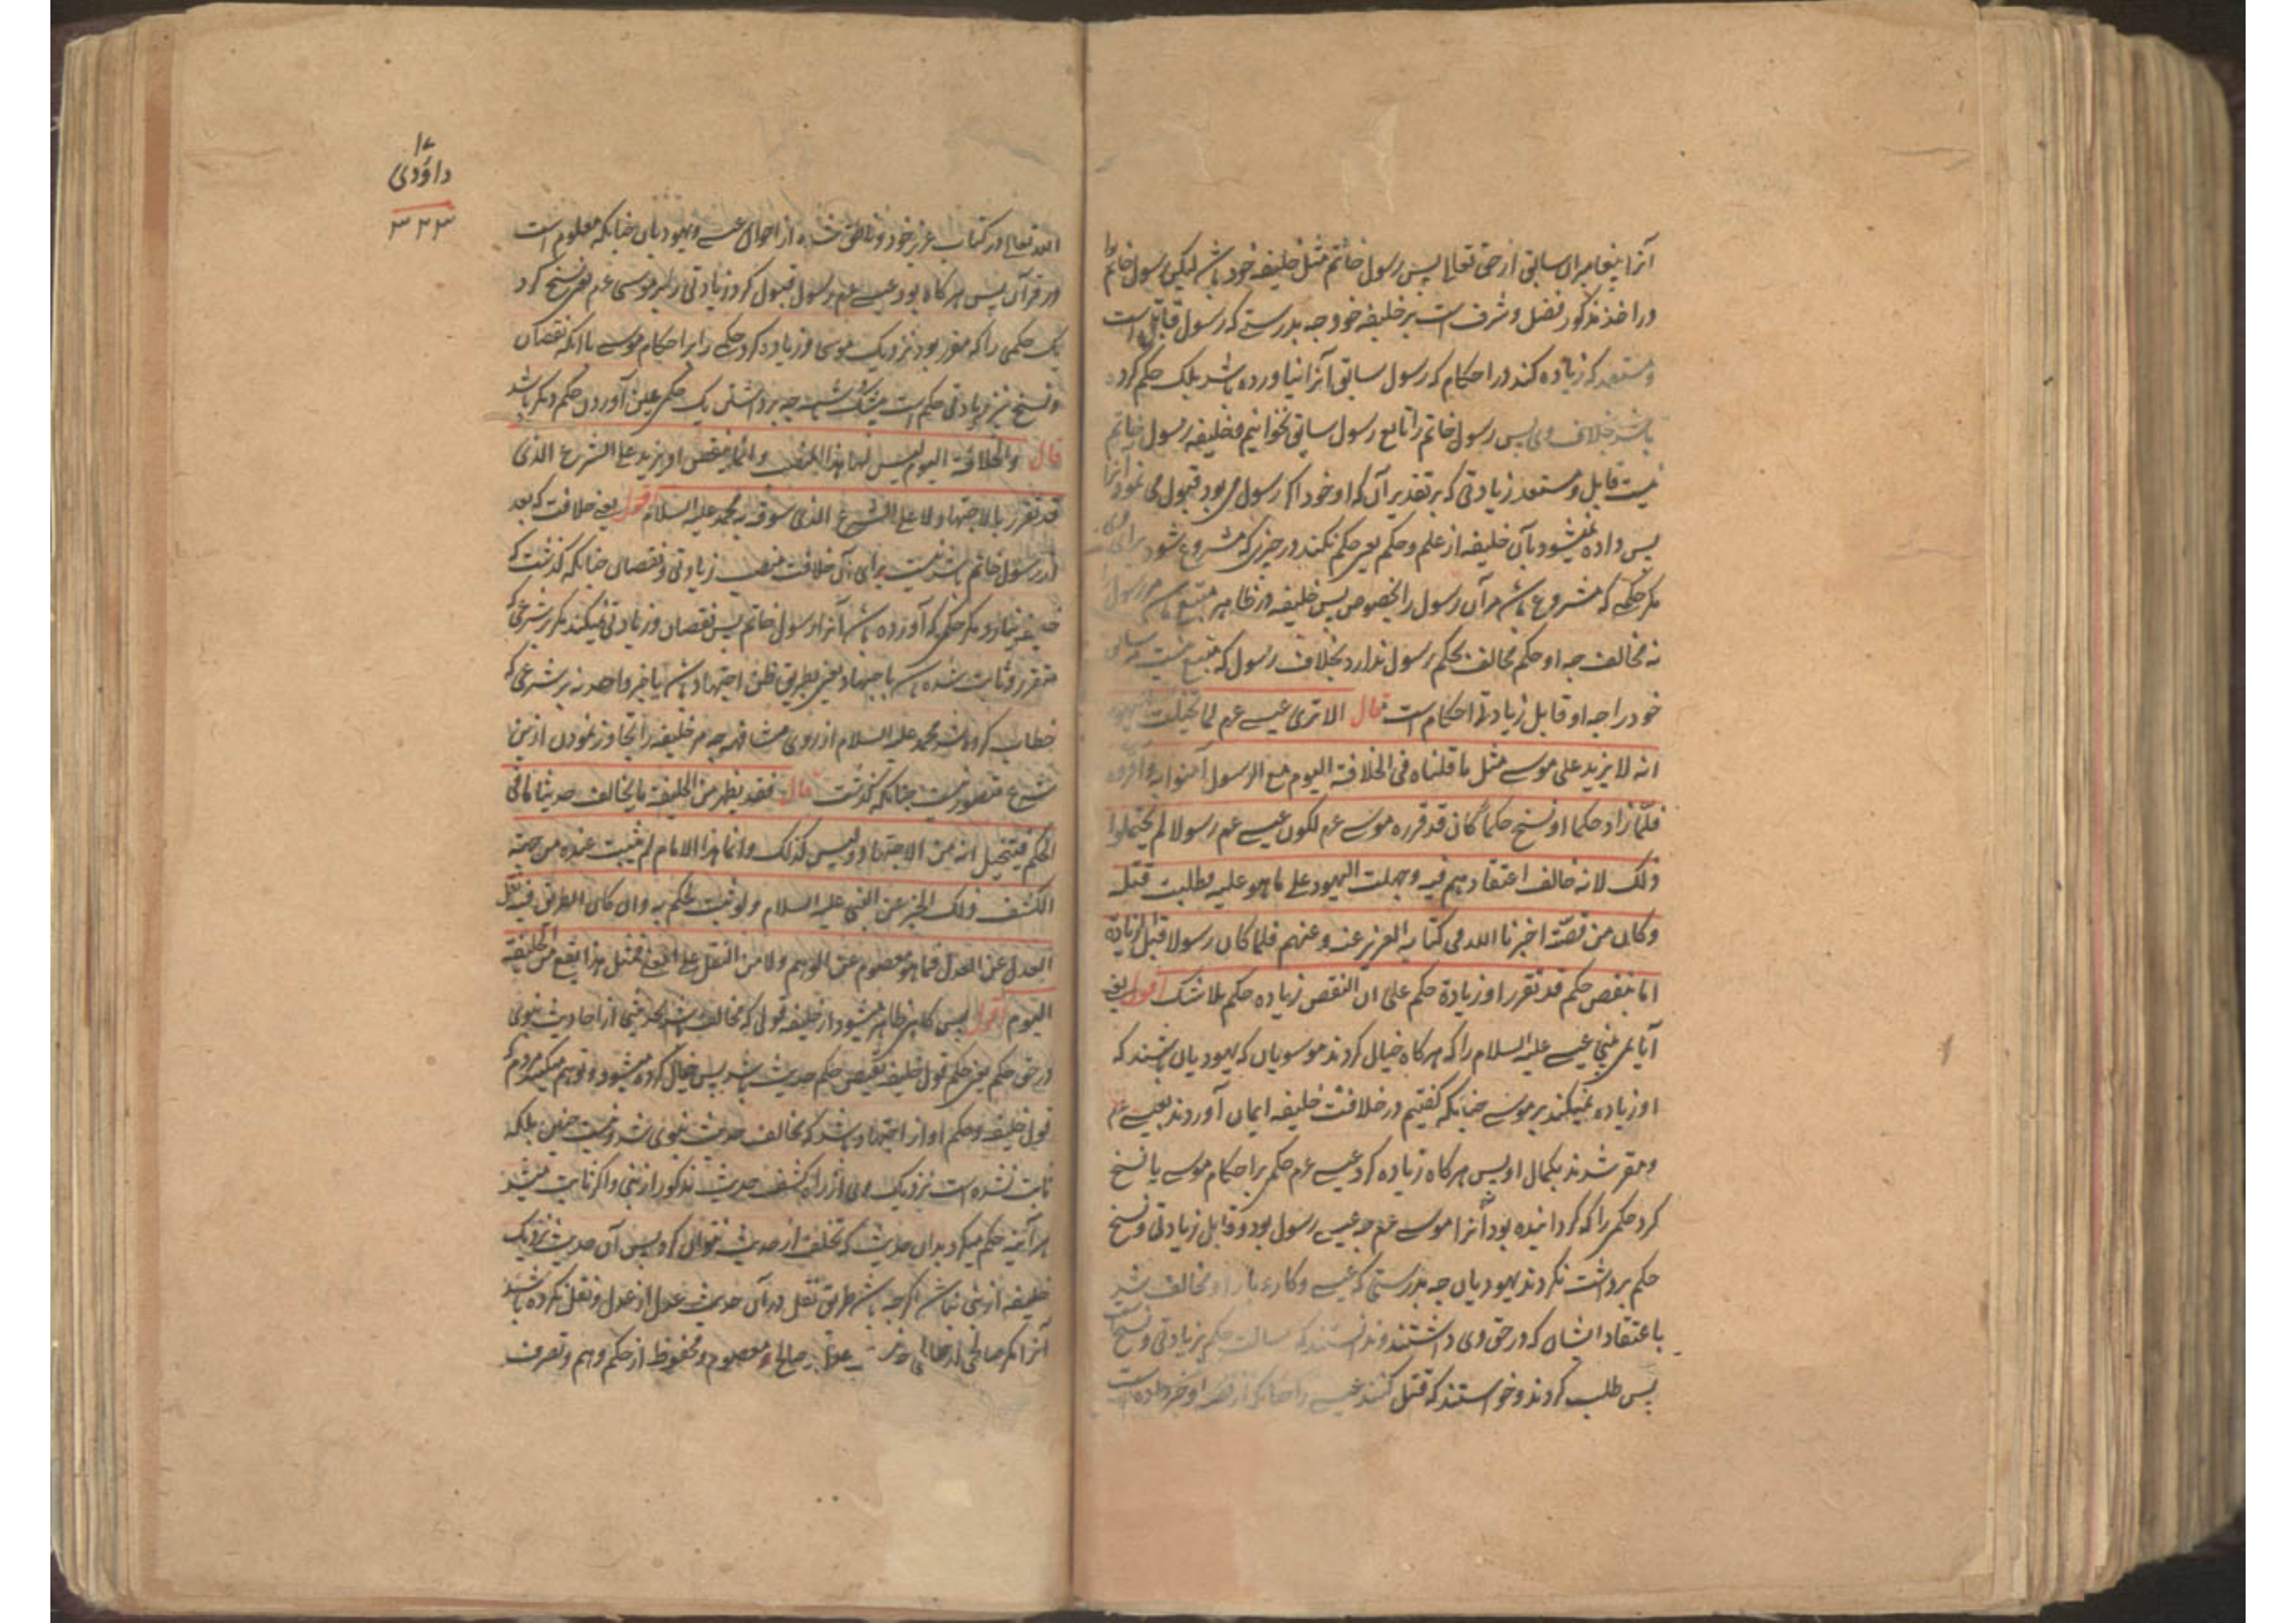 آنرا پیغامبران سابق از حق تعالی پس رسول خاتم مثل خلیفه خود باشد لیکن رسول خاتم را
در اخذ مذکور فضل و شرف است بر خلیفه خود چه بدرستی که رسول قابل است
و مستعد که زیاده کند در احکام که رسول سابق آنرا نیاورده باشد بلکه حکم کرده
باشد خلاف وی پس رسول خاتم را تابع رسول سابق نخوانیم و خلیفه رسول خاتم
نیست قابل و مستعد زیادتی که بر تقدیر آن که او خود اکر رسول می بود قبول می نمود آنرا
پس داده نمیشود بآن خلیفه از علم و حکم یعنی حکم نکند در چیزی که مشروع شود برای وی
مکر حکمی که مشروع باشد مر آن رسول را بخصوص پس خلیفه در ظاهر متبع باشد مر رسول را
نه مخالف چه او حکم مخالف بحکم رسول ندارد بخلاف رسول که متبع نیست مر سابق
خود را چه او قابل زیادتی احکام است قال الا تری عیسی عم لما تخیلت الیهود
انه لا یزید علی موسی مثل ما قلناه فی الخلافة الیوم مع الرسول آمنوا به و اقروه
فلما زاد حکما او نسخ حکما کان قد قرره موسی عم لکون عیسی عم رسولا لم یحتملوا
ذلک لانه خالف اعتقادهم فیه و جهلت الیهود علی ما هو علیه فطلبت قتله
و کان من قصته اخبرنا الله فی کتابه العزیز عنه و عنهم فلما کان رسولا قبل الزیادة
اما بنقص حکم قد تقرر او زیادة حکم علی ان النقص زیاده حکم بلا شک اقول یعنی
آیا نمی بینی عیسی علیه السلام را که هرکاه خیال کردند موسویان که یهودیان باشند که
او زیاده نمیکند بر موسی چنانکه کفتیم در خلافت خلیفه ایمان آوردند بعیسی عم
و مقر شدند بکمال او پس هرکاه زیاده کرد عیسی عم حکم بر احکام موسی یا نسخ
کرد حکمی را که کردانیده بود آنرا موسی عم چه عیسی رسول بود و قابل زیادتی و نسخ
حکم برداشت نکردند یهودیان چه بدرستی که عیسی و کار و بار او مخالف شد
با اعتقاد ایشان که در حق وی داشتند و ندانستند که رسالت حکم بزیادتی و نسخ است
پس طلب کردند و خواستند که قتل کنند عیسی را چنانکه از قصه او خبر داده است
۱۷
داؤدی
۳۲۳
الله تعالی در کتاب عزیز خود از احوال عیسی و یهودیان چنانکه معلوم است
در قرآن پس هرکاه بود عیسی عم رسول قبول کرد زیادتی را بر موسی عم یعنی نسخ کرد
یک حکمی را که مقرر بود نزدیک موسی و زیاده کرد حکمی را بر احکام موسی با آنکه نقصان
و نسخ نیز زیادتی حکم است بیشک و شبهه چه برداشتن یک حکم عین آوردن حکم دیکر باشد
قال و الخلافة الیوم لیس لها هذا المنصب و انما ینقص او یزید علی الشرع الذی
قد تقرر بالاجتهاد لا علی الشرع الذی شوفه به محمد علیه السلام اقول یعنی خلافت که بعد
از رسول خاتم باشد نیست برای آن خلافت منصب زیادتی و نقصان چنانکه کذشت که
خلیفه نیارد مکر حکمی که آورده باشد آنرا رسول خاتم پس نقصان و زیادتی نمیکند مکر بر شرعی که
متقرر و ثابت شده باشد باجتهاد یعنی بطریق ظن اجتهاد باشد یا خبر واحد نه بر شرعی که
خطاب کرده شد محمد علیه السلام از روی مشافهه چه مر خلیفه را تجاوز نمودن ازین
شرع متصور نیست چنانکه کذشت قال فقد یظهر من الخلیفة ما یخالف حدیثا ما فی
الحکم فیتخیل انه من الاجتهاد و لیس کذلک و انما هذا الامام لم یثبت عنده من جهة
الکشف ذلک الخبر عن النبی علیه السلام و لو ثبت لحکم به و ان کان الطریق فیه نقل
العدل عن العدل فما هو معصوم عن الوهم و لا من النقل علی المعنی فمثل هذا یقع من الخلیفة
الیوم اقول پس کاهی ظاهر میشود از خلیفه قولی که مخالف باشد بحدیثی از احادیث نبوی
در حق حکم یعنی حکم قول خلیفه نقیض حکم حدیث باشد پس خیال کرده میشود و توهم میکند مردم که
قول خلیفه و حکم او از اجتهاد باشد که مخالف حدیث نبوی شد و نیست چنین بلکه
ثابت نشده است نزدیک وی از راه کشف حدیث مذکور از نبی و اکر ثابت میشد
هرآینه حکم میکرد بدان حدیث که تخلف از حدیث نتوانی کرد پس آن حدیث نزدیک
خلیفه از نبی نباشد اکرچه باشد طریق نقل در آن حدیث عدل از عدل و نقل نکرده باشد
آنرا مکر صالحی از صالحی صالح و معصوم و محفوظ از حکم وهم و تصرف